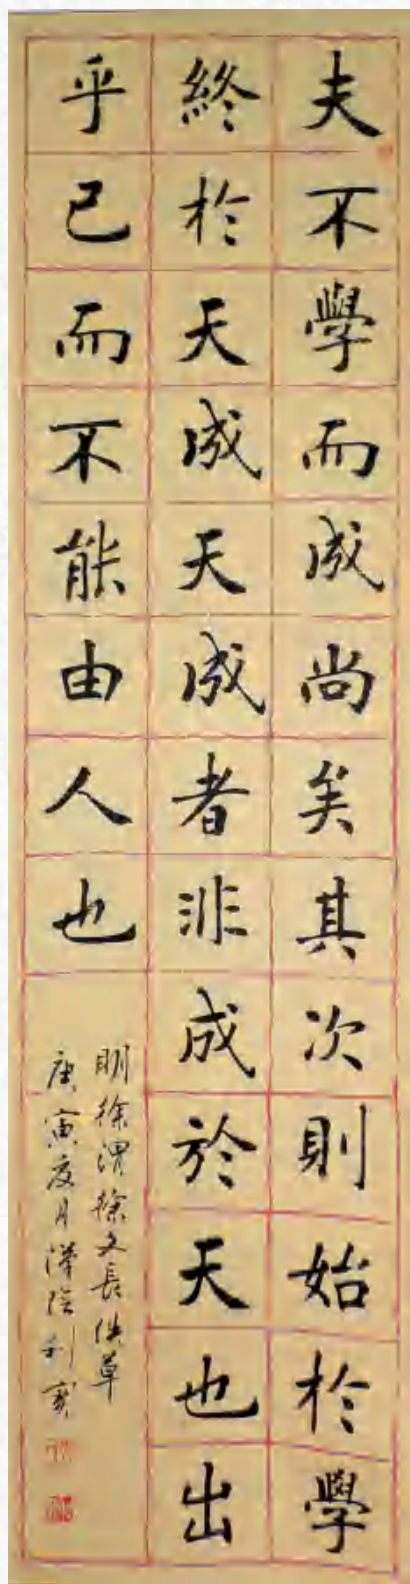 夫不學而成尚矣其次則始於學
終於天成天成者非成於天也出
乎己而不能由人也
明徐渭徐文長佚草
庚寅夏月漢陰利寅